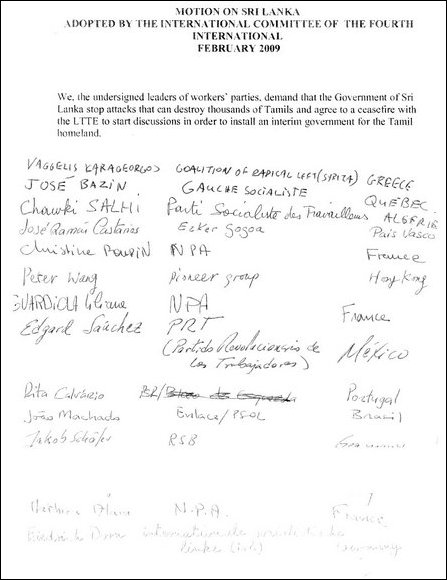 MOTION ON SRI LANKA
ADOPTED BY THE INTERNATIONAL COMMITTEE OF THE FOURTH
INTERNATIONAL
FEBRUARY 2009
We, the undersigned leaders of workers' parties, demand that the Government of Sri
Lanka stop attacks that can destroy thousands of Tamils and agree to a ceasefire with
the LTTE to start discussions in order to install an interim government for the Tamil
homeland.
VAGGELIS KARAGEORGOS COALITION OF RADICAL LEFT (SYRIZA) GREECE
JOSÉ BAZIN GAUCHE SOCIALISTE QUÉBEC
Chawki SALHI Parti Socialiste des Travailleurs ALGERIE
José Ramón Castaños Ezker Gogoa País Vasco
Christine Poupin NPA France
Peter Wang Pioneer group Hong Kong
GUARDIOLA Liliane NPA France
Edgard Sánchez PRT
(Partido Revolucionario de
los Trabajadores) México
Rita Calvário BE/ Portugal
João Machado Enlace/PSOL Brasil
Jakob Schäfer RSB
N.P.A. France
internationale
linke (isl) Germany